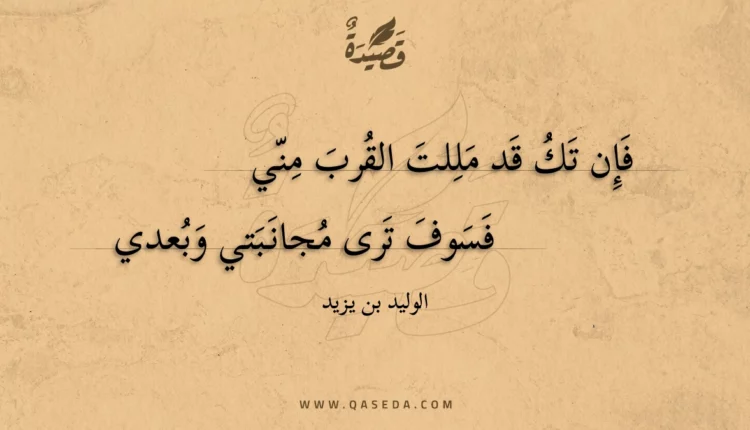 قَصِيْدَةٌ
فَإِن تَكُ قَد مَلِلتَ القُربَ مِنّي
فَسَوفَ تَرى مُجانَبَتي وَبُعدي
الوليد بن يزيد
WWW.QASEDA.COM